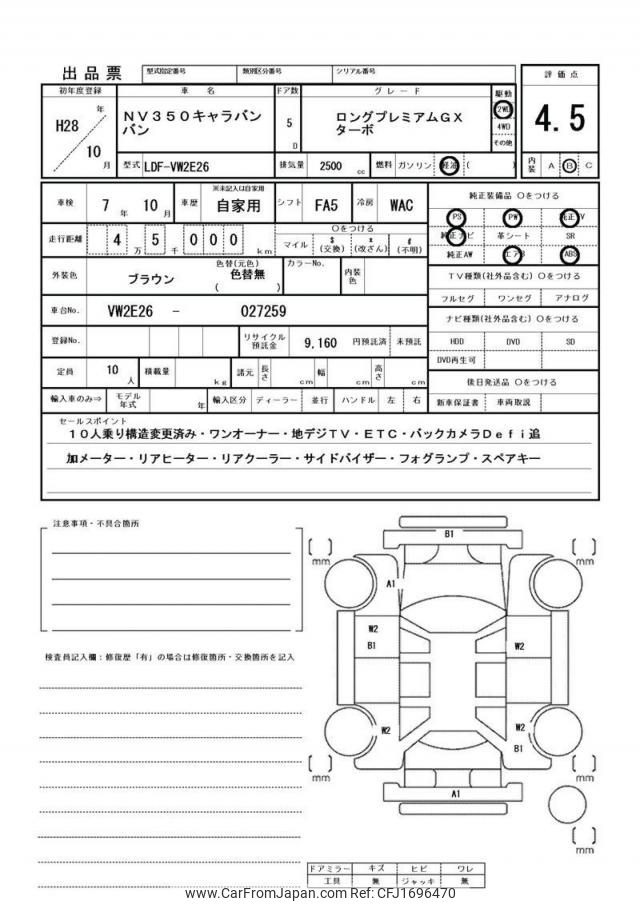 出品票 型式指定番号 類別区分番号 シリアル番号
初年度登録 車名 ドア数 グレード 駆動 評価点
H28 年 10 月
NV350キャラバン
バン
5 D
ロングプレミアムGX
ターボ
2WD
4WD
その他
4.5
型式 LDF-VW2E26 排気量 2500 cc 燃料 ガソリン 軽油 ( ) 内装 A B C
車検 7 年 10 月 車歴 ※未記入は自家用 自家用 シフト FA5 冷房 WAC
純正装備品 〇をつける
PS PW 純正TV
純正ナビ 革シート SR
純正AW エアB ABS
走行距離 4 万 5 千 0 0 0 km
〇をつける
マイル $(交換) *(改ざん) #(不明)
外装色 ブラウン 色替(元色) 色替無 ( ) カラーNo. 内装色
TV種類(社外品含む) 〇をつける
フルセグ ワンセグ アナログ
車台No. VW2E26 - 027259
ナビ種類(社外品含む) 〇をつける
登録No. リサイクル預託金 9,160 円預託済 未預託
HDD DVD SD
DVD再生可
定員 10 人 積載量 kg 諸元 長さ cm 幅 cm 高さ cm
後日発送品 〇をつける
輸入車のみ⇒ モデル年式 年 輸入区分 ディーラー 並行 ハンドル 左 右
新車保証書 車両取説
セールスポイント
10人乗り構造変更済み・ワンオーナー・地デジTV・ETC・バックカメラDefi追
加メーター・リアヒーター・リアクーラー・サイドバイザー・フォグランプ・スペアキー
注意事項・不具合箇所
検査員記入欄：修復歴「有」の場合は修復箇所・交換箇所を記入
B1
mm
mm
A1
W2
B1
W2
W2
W2
B1
mm
mm
A1
mm
ドアミラー キズ ヒビ ワレ
工具 無 ジャッキ 無
www.CarFromJapan.com - CFJ1696470